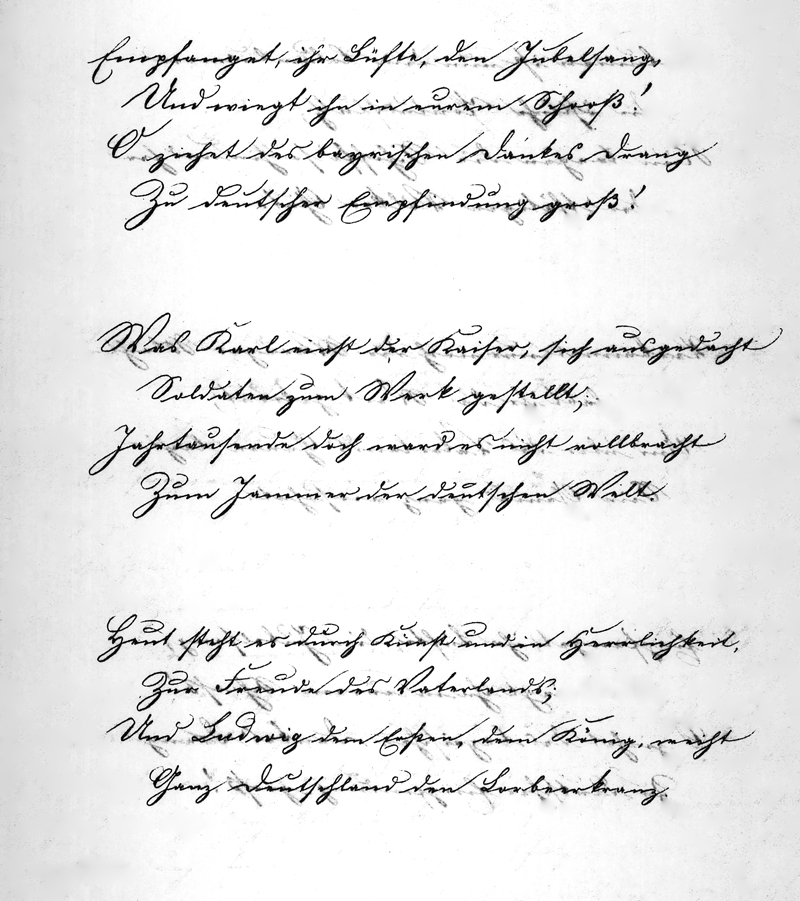 Empfanget, ihr Lüfte, den Jubelsang,
Und wiegt ihn in eurem Schooß!
O ziehet des bayrischen Dankes Drang
Zu deutscher Empfindung groß!
Was Karl einst der Kaiser, sich ausgedacht
Soldaten zum Werk gestellt;
Jahrtausende doch ward es nicht vollbracht
Zum Jammer der deutschen Welt.
Heut steht es durch Kunst und in Herrlichkeit,
Zur Freude des Vaterlands;
Und Ludwig dem Ersten, dem König, weiht
Ganz Deutschland den Lorbeerkranz.